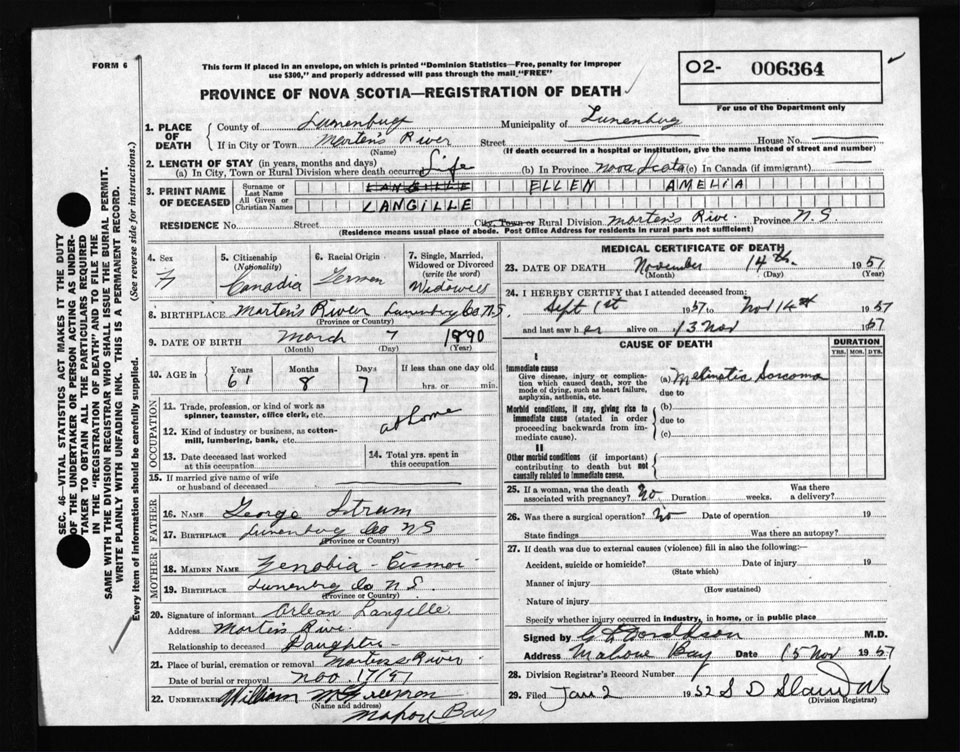 FORM 6
This form if placed in an envelope, on which is printed "Dominion Statistics—Free, penalty for improper
use $300," and properly addressed will pass through the mail "FREE"
O2- 006364
For use of the Department only
PROVINCE OF NOVA SCOTIA—REGISTRATION OF DEATH
1. PLACE OF DEATH
County of Lunenburg Municipality of Lunenburg
If in City or Town Marten's River Street House No.
(Name) (If death occurred in a hospital or institution, give the name instead of street and number)
2. LENGTH OF STAY (in years, months and days)
(a) In City, Town or Rural Division where death occurred Life (b) In Province Nova Scota (c) In Canada (if immigrant)
3. PRINT NAME OF DECEASED
Surname or Last Name LANGILLE ELLEN AMELIA
All Given or Christian Names LANGILLE
RESIDENCE No. Street City, Town or Rural Division Marten's Rive. Province N.S.
(Residence means usual place of abode. Post Office Address for residents in rural parts not sufficient)
4. Sex F
5. Citizenship (Nationality) Canadia
6. Racial Origin German
7. Single, Married, Widowed or Divorced (write the word) Widowed
8. BIRTHPLACE Marten's River Lunenburg Co N.S.
(Province or Country)
9. DATE OF BIRTH March 7 1890
(Month) (Day) (Year)
10. AGE in Years 61 Months 8 Days 7 If less than one day old hrs. or min.
OCCUPATION
11. Trade, profession, or kind of work as spinner, teamster, office clerk, etc. at home
12. Kind of industry or business, as cotton-mill, lumbering, bank, etc.
13. Date deceased last worked at this occupation
14. Total yrs. spent in this occupation
15. If married give name of wife or husband of deceased
FATHER
16. NAME George Strum
17. BIRTHPLACE Lunenburg Co NS
(Province or Country)
MOTHER
18. MAIDEN NAME Zenobia Eisnor
19. BIRTHPLACE Lunenburg Co N.S.
(Province or Country)
20. Signature of informant Orlean Langille
Address Marten's Rive
Relationship to deceased Daughter
21. Place of burial, cremation or removal Marten's River
Date of burial or removal Nov. 17/51
22. UNDERTAKER William
(Name and address)
Mahone Bay
MEDICAL CERTIFICATE OF DEATH
23. DATE OF DEATH November 14th 1951
(Month) (Day)
24. I HEREBY CERTIFY that I attended deceased from:
Sept 1st 1951 to Nov 14th 1951
and last saw her alive on 13 Nov 1951
CAUSE OF DEATH
DURATION
YRS. MOS. DYS.
I
Immediate cause
Give disease, injury or complication which caused death, not the mode of dying, such as heart failure, asphyxia, asthenia, etc.
(a) Melinatic Sarcoma
due to
Morbid conditions, if any, giving rise to immediate cause (stated in order proceeding backwards from immediate cause).
(b)
due to
(c)
II
Other morbid conditions (if important) contributing to death but not causally related to immediate cause.
25. If a woman, was the death associated with pregnancy? No Duration weeks. Was there a delivery?
26. Was there a surgical operation? No Date of operation 19
State findings Was there an autopsy?
27. If death was due to external causes (violence) fill in also the following:—
Accident, suicide or homicide? Date of injury 19
(State which)
Manner of injury
(How sustained)
Nature of injury
Specify whether injury occurred in industry, in home, or in public place
Signed by M.D.
Address Mahone Bay Date 15 Nov 1951
28. Division Registrar's Record Number
29. Filed Jan 2 1952 S D
(Division Registrar)
SEC. 46—VITAL STATISTICS ACT MAKES IT THE DUTY
OF THE UNDERTAKER OR PERSON ACTING AS UNDERTAKER TO OBTAIN ALL THE PARTICULARS REQUIRED
IN THE "REGISTRATION OF DEATH" AND TO FILE THE
SAME WITH THE DIVISION REGISTRAR WHO SHALL ISSUE THE BURIAL PERMIT.
WRITE PLAINLY WITH UNFADING INK. THIS IS A PERMANENT RECORD.
Every item of information should be carefully supplied. (See reverse side for instructions.)